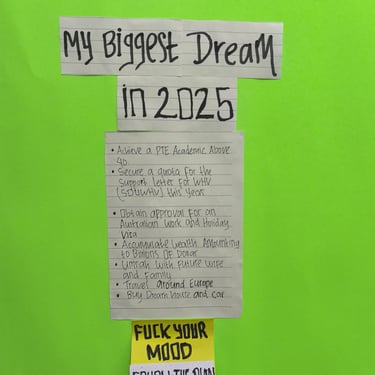 My Biggest Dream
in 2025
• Achieve a PTE Academic Above
40.
• Secure a quota for the
Support letter For WHV
(SDUWHV) this year
• Obtain approval for an
Australian Work and Holiday
Visa
• Accumulate wealth Amounting
to Billions OF Dollar
• Umrah with Future Wife
and Family
• Travel around Europe
• Buy Dream House and car
FUCK YOUR
MOOD
FOLLOW THE PLAN